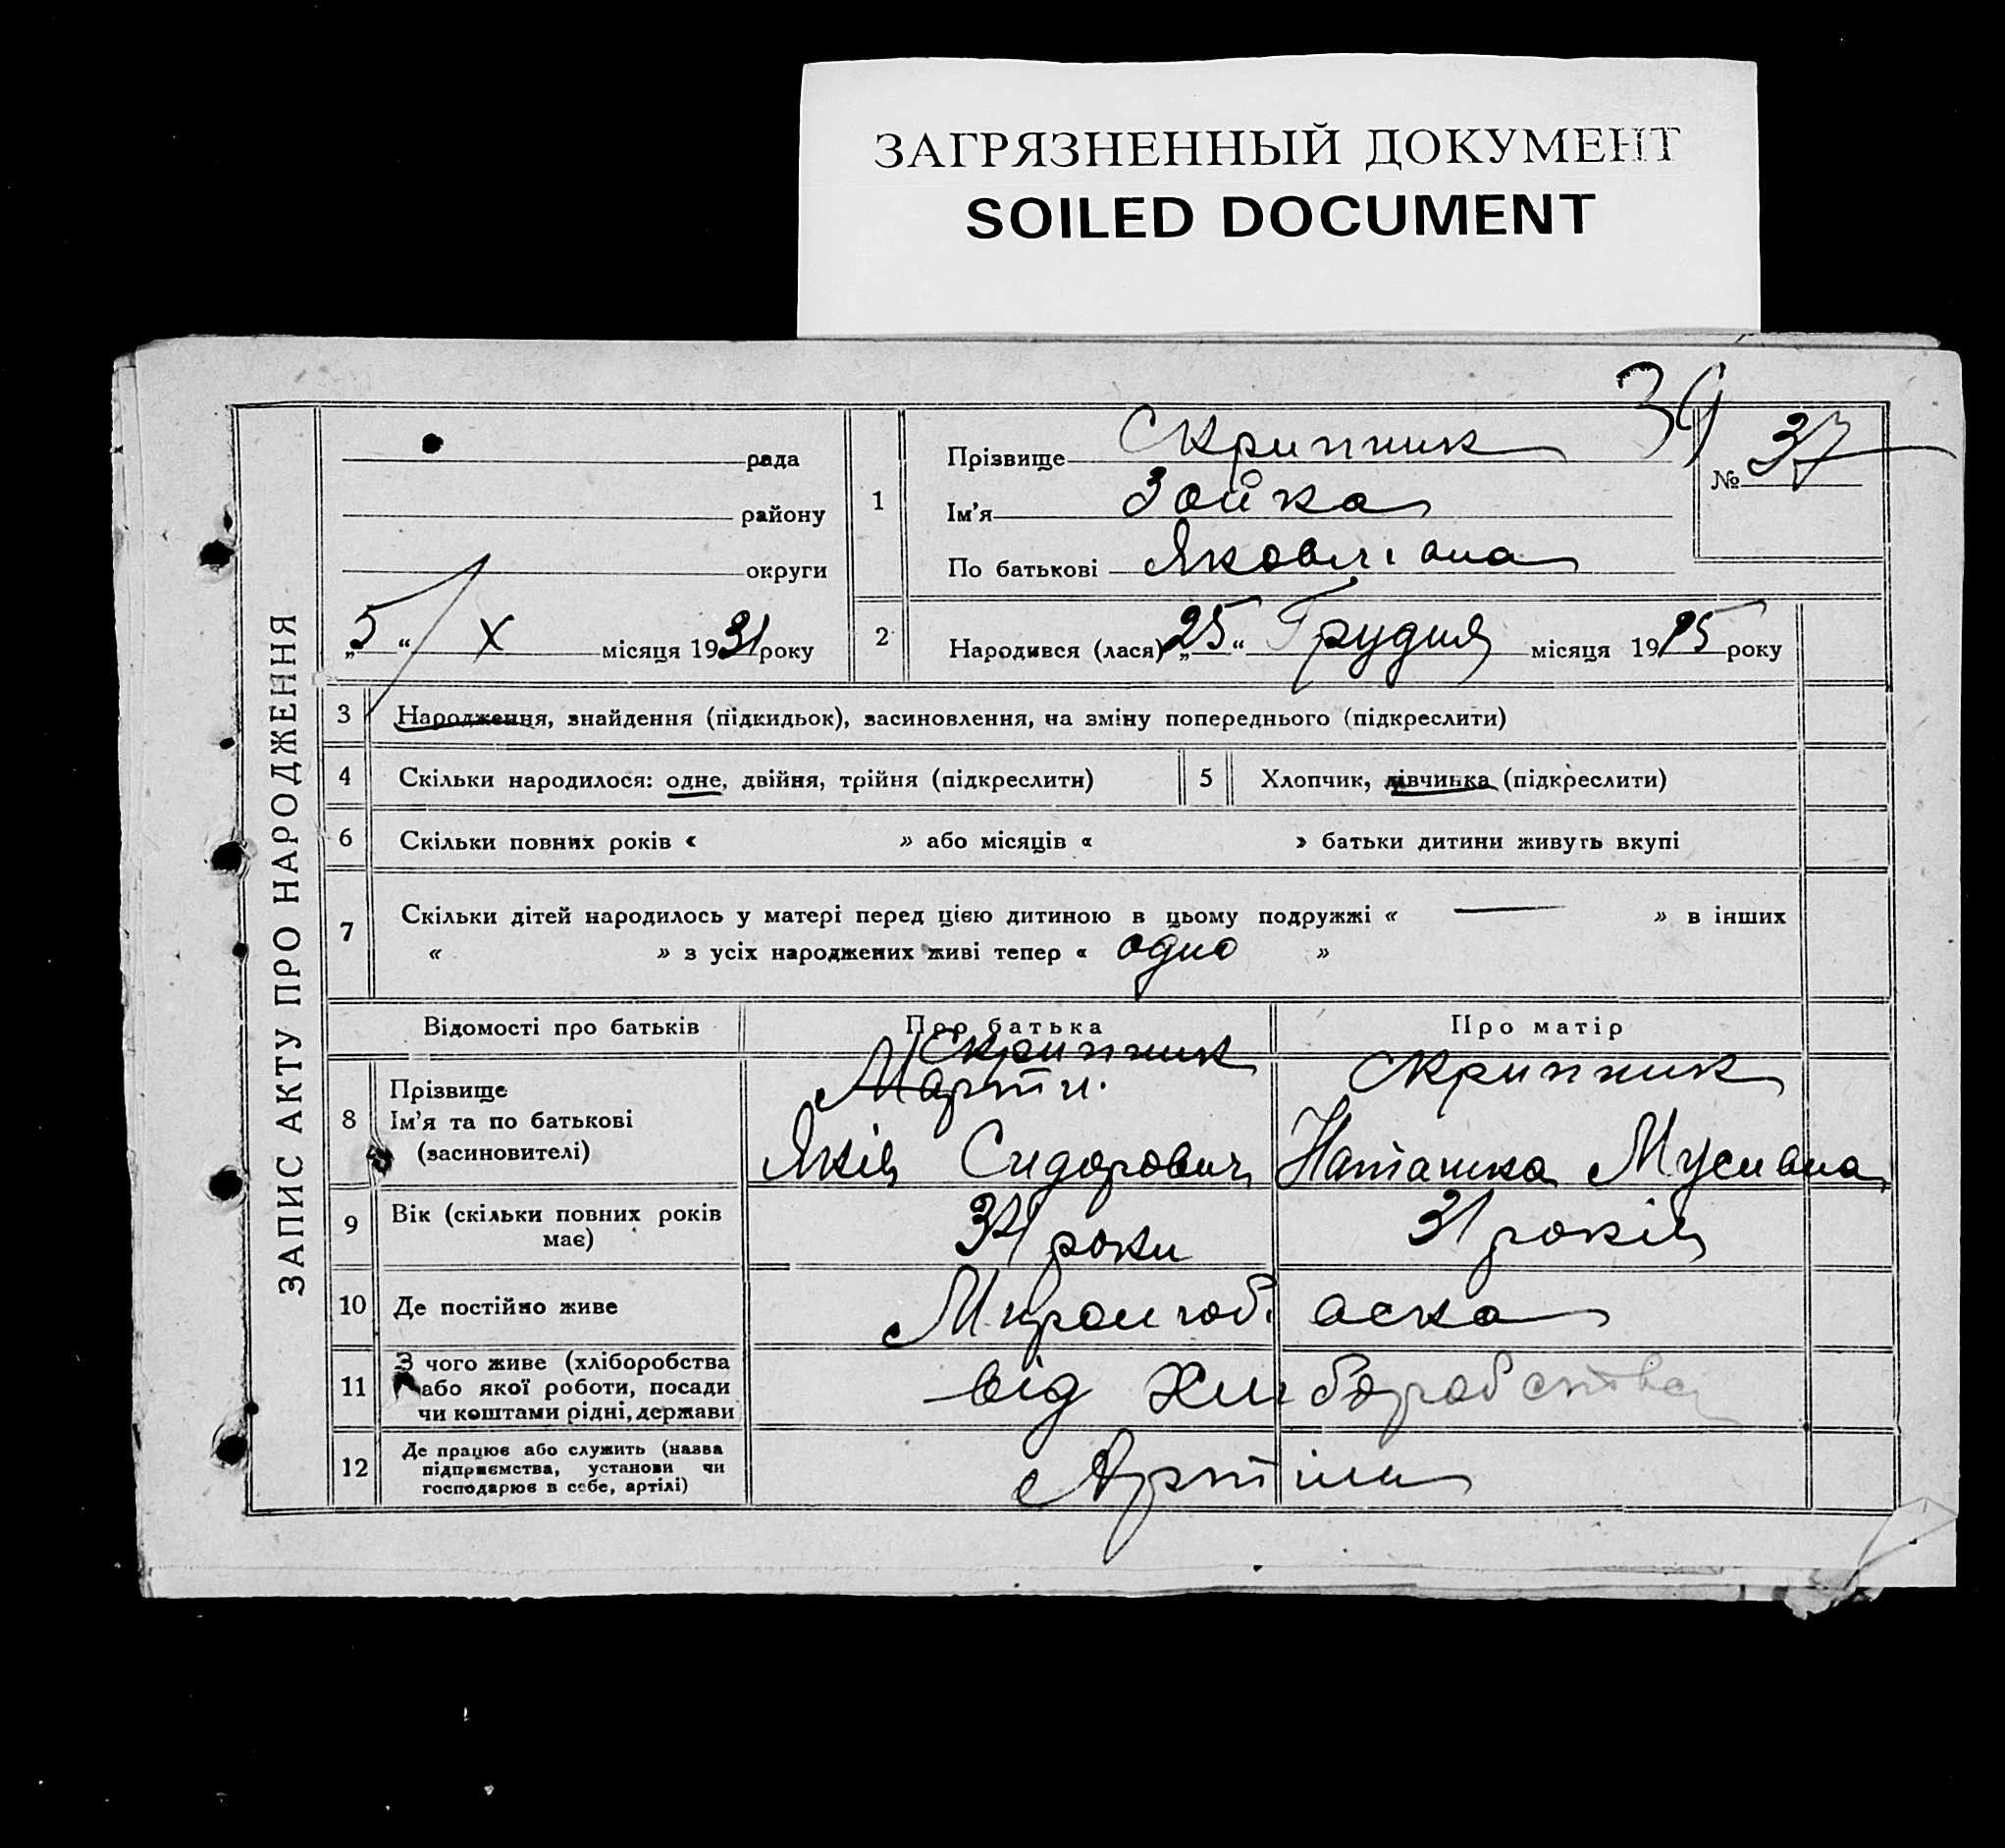 ЗАГРЯЗНЕННЫЙ ДОКУМЕНТ
SOILED DOCUMENT
39
ЗАПИС АКТУ ПРО НАРОДЖЕННЯ
рада
району
округи
„5“ X місяця 1931 року
1
Прізвище Скрипник
Ім'я Зойка
По батькові
№ 37
2 Народився (лася) „25“ Грудня місяця 1925 року
3 Народження, знайдення (підкидьок), засиновлення, на зміну попереднього (підкреслити)
4 Скільки народилося: одне, двійня, трійня (підкреслити)
5 Хлопчик, дівчинка (підкреслити)
6 Скільки повних років « » або місяців « » батьки дитини живуть вкупі
7 Скільки дітей народилось у матері перед цією дитиною в цьому подружжі « — » в інших
« » з усіх народжених живі тепер « одно »
Відомості про батьків
Про батька
Про матір
8 Прізвище
Ім'я та по батькові
(засиновителі)
Скрипник
Яків Сидорович
Скрипник
Наташка Мусивна
9 Вік (скільки повних років
має)
роки
31 років
10 Де постійно живе
11 З чого живе (хліборобства
або якої роботи, посади
чи коштами рідні, держави
від Хліборобства
12 Де працює або служить (назва
підприємства, установи чи
господарює в себе, артілі)
Артіли